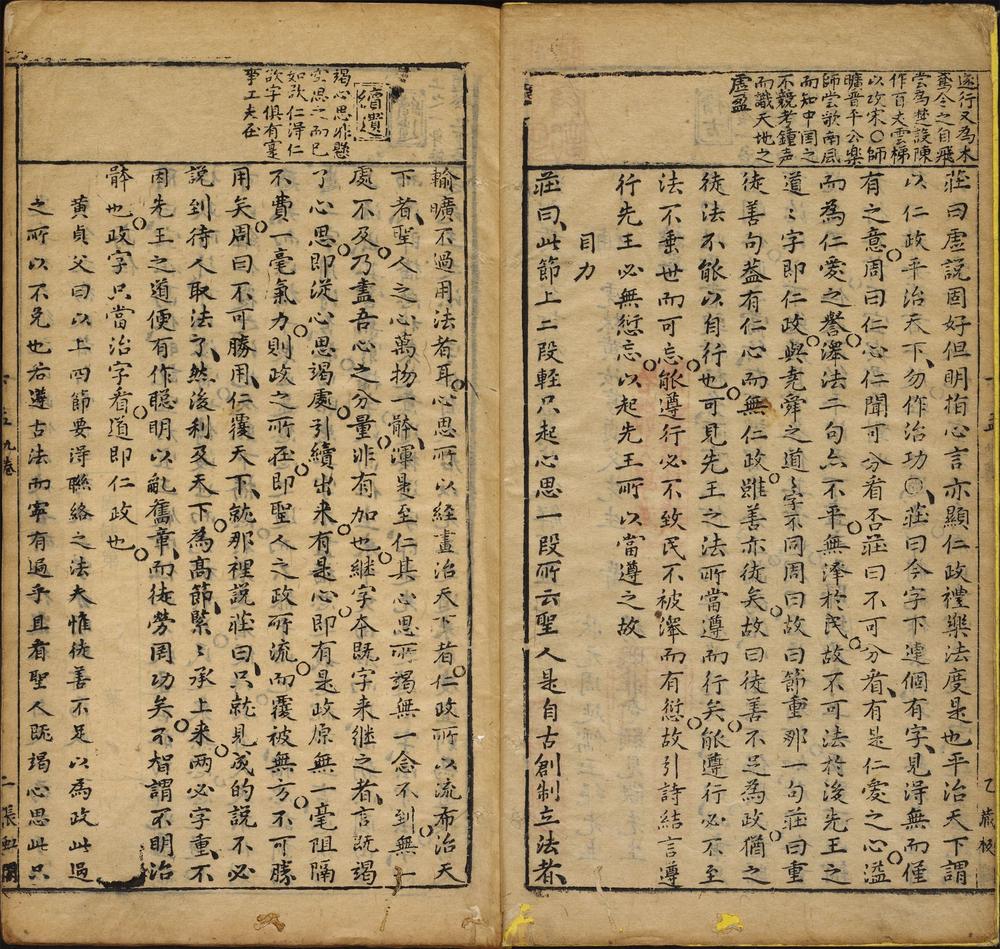 遂行又為木
鳶令之自飛
嘗為楚設陳
作百丈雲梯
以攻宋〇師
曠晉平公樂
師嘗歌南風
而知中国之
不競考鐘声
而識天地之
虛盈
莊曰虛說固好但明指心言亦顯仁政禮樂法度是也平治天下謂
以仁政平治天下勿作治功〇莊曰今字下連個有字見得無而僅
有之意周曰仁心仁聞可分看否莊曰不可分看有是仁愛之心溢
而為仁愛之譽澤法二句亦不平無澤於民故不可法於後先王之
道〻字即仁政與堯舜之道〻字不同周曰故曰節重那一句莊曰重
徒善句葢有仁心而無仁政雖善亦徒矣故曰徒善不足為政猶之
徒法不能以自行也可見先王之法所當遵而行矣能遵行必不至
法不垂世而可忘能遵行必不致民不被澤而有愆故引詩結言遵
行先王必無愆忘以起先王所以當遵之故
目力
莊曰此節上二段軽只起心思一段所云聖人是自古創制立法者
乙
藏板
續遺
竭心思非懸
空思之而已
如欲仁得仁
欲字俱有寔
事工夫在
輸曠不過用法者耳心思所以經畫治天下者仁政所以流布治天
下者聖人之心萬物一骵渾是至仁其心思所竭無一念不到無一
處不及乃盡吾心之分量非有加也継字本既字来継之者言既竭
了心思即從心思竭處引續出来有是心即有是政原無一毫阻隔
不費一毫氣力則政之所在即聖人之政所流而覆被無方不可勝
用矣周曰不可勝用仁覆天下就那裡説莊曰只就見成的説不必
説到待人取法了然後利及天下為髙節緊〻承上来两必字重不
因先王之道便有作聡明以亂舊章而徒勞罔功矣不智謂不明治
骵也政字只當治字看道即仁政也
黄貞父曰以上四節要得聯絡之法夫惟徒善不足以為政此過
之所以不免也若遵古法而寧有過乎且看聖人既竭心思此只
九卷
二
張虹閣